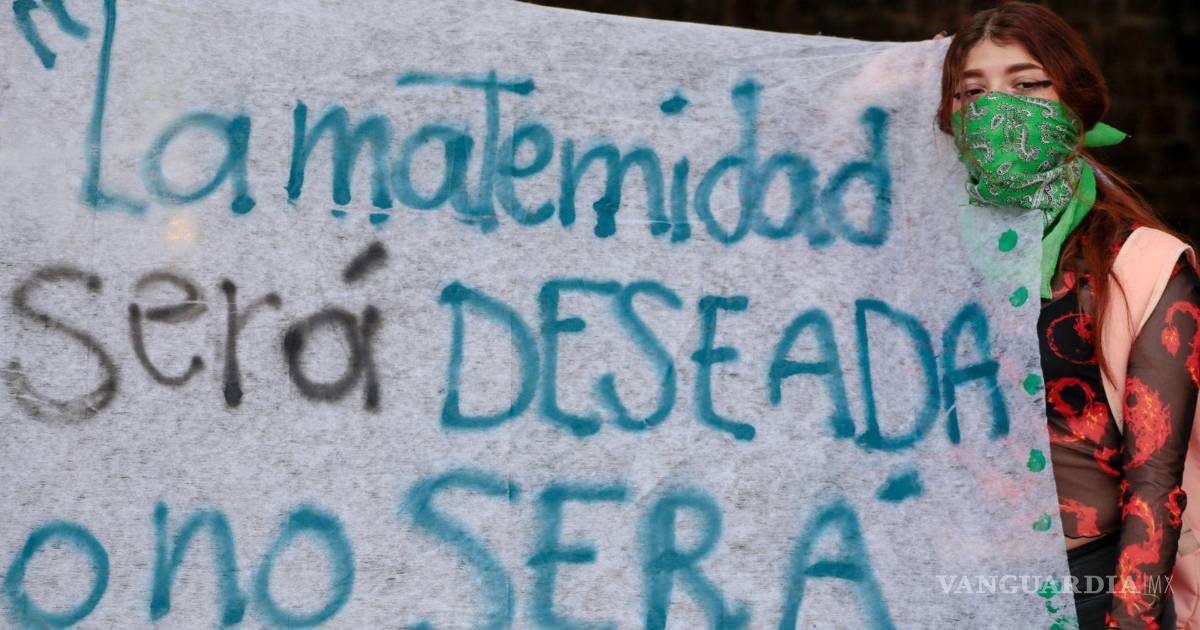 La maternidad
será DESEADA
o no SERÁ
VANGUARDIA|MX